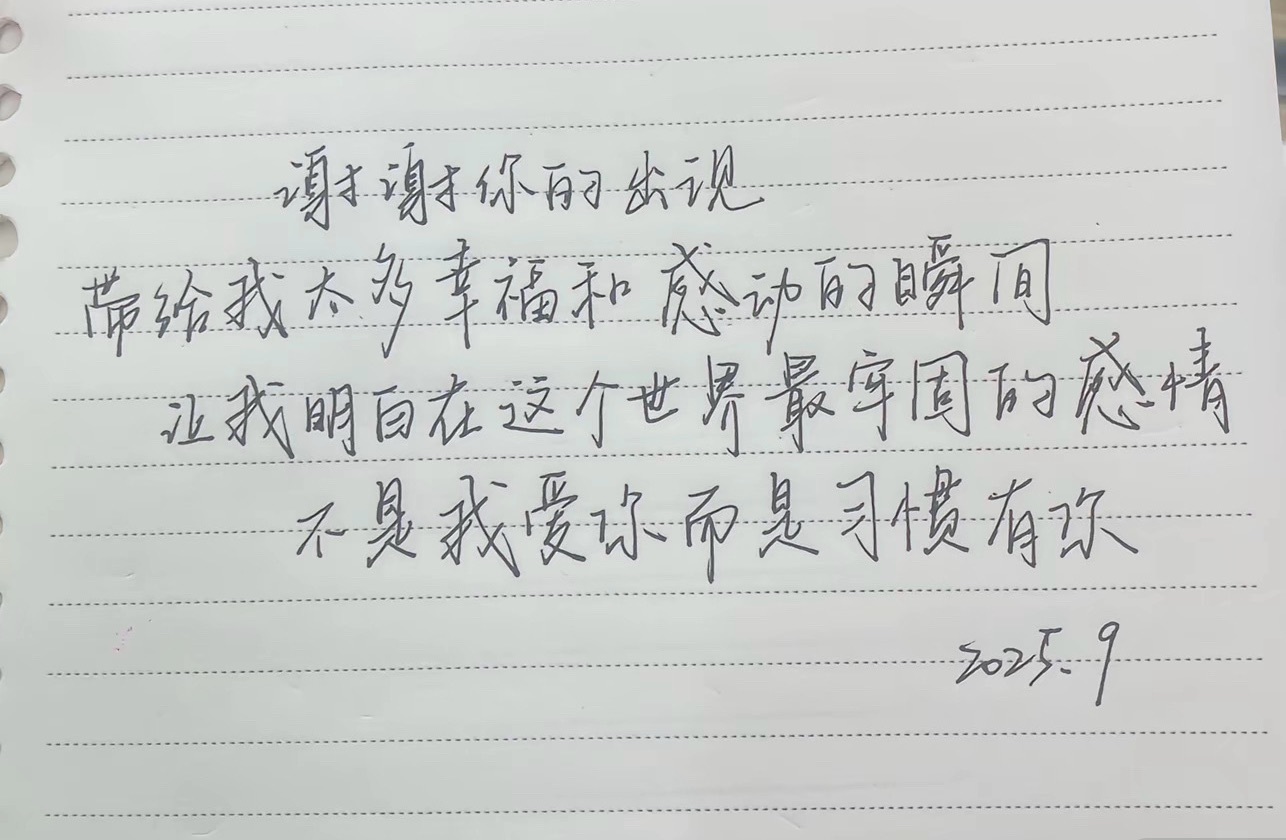 谢谢你的出现
带给我太多幸福和感动的瞬间
让我明白在这个世界最牢固的感情
不是我爱你而是习惯有你
2025.9